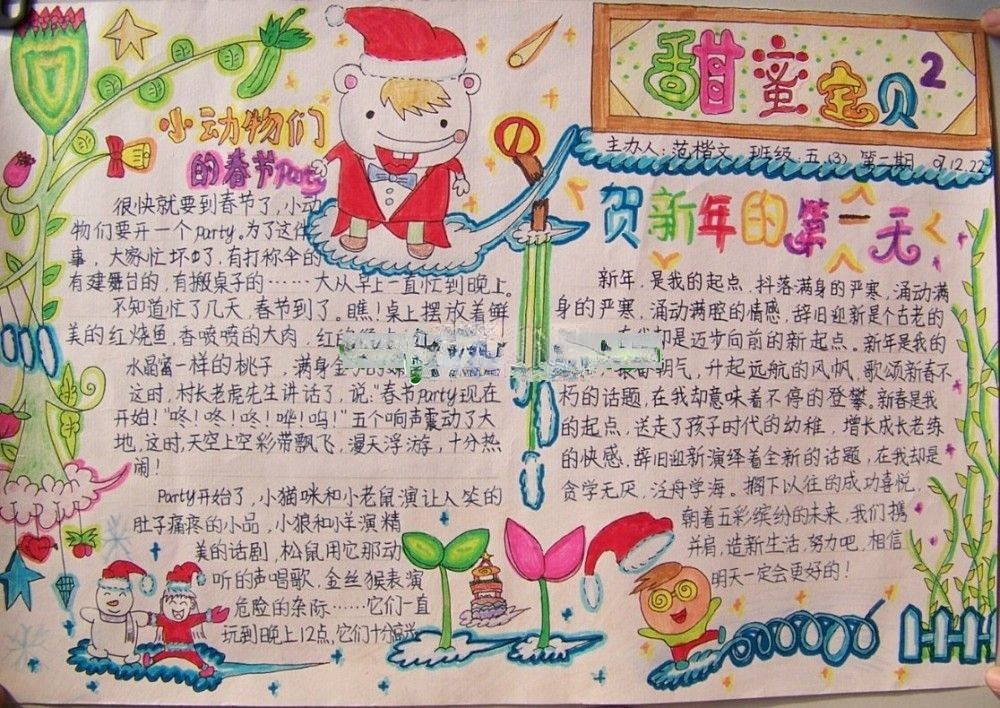 甜蜜宝贝2
主办人:范楷文 班级 五(3) 第二期 07.12.22
小动物们
的春节Party
很快就要到春节了,小动
物们要开一个party。为了这件
事,大家忙坏了,有打称伞的
有建舞台的,有搬桌子的……大从早上一直忙到晚上。
不知道忙了几天,春节到了。瞧!桌上摆放着鲜
美的红烧鱼,香喷喷的大肉,红的
水晶窗一样的桃子,满身金
这时,村长老虎先生讲话了,说:“春节party现在
开始!”咚!咚!咚!哗!呜!”五个响声震动了大
地,这时,天空上空彩带飘飞,漫天浮游,十分热
闹!
Party开始了,小猫咪和小老鼠演让人笑的
肚子痛疼的小品,小狼和小羊演精
美的话剧,松鼠用它那动
听的声唱歌,金丝猴表演
危险的杂际……它们一直
玩到晚上12点,它们十分高兴
贺新年的第一天
新年,是我的起点,抖落满身的严寒,涌动满
身的严寒,涌动满腔的情感,辞旧迎新是个古老的
在我却是迈步向前的新起点。新年是我的
朝气,升起远航的风帆,歌颂新春不
朽的话题,在我却意味着不停的登攀。新春是我
的起点,送走了孩子时代的幼稚,增长成长老练
的快感,辞旧迎新演绎着全新的话题,在我却是
贪学无厌,泛舟学海。搁下以往的成功喜悦,
朝着五彩缤纷的未来,我们携
并肩,造新生活,努力吧,相信
明天一定会更好的!